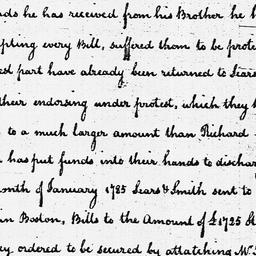 ds he has received from his Brother he
pting every Bill, suffered them to be prote
ed part have already been returned to Sears
their endorsing under protest, which they
to a much larger amount than Richard
has put funds into their hands to dischar
month of January 1785 Sears & Smith sent to
in Boston, Bills to the Amount of £1725 St
ey ordered to be secured by attatching Mr.